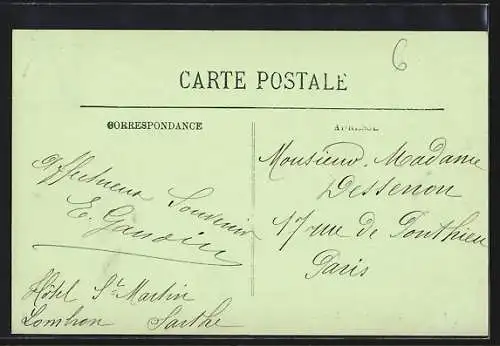 6
CARTE POSTALE
CORRESPONDANCE
ADRESSE
Affectueux Souvenir
E. Gandin
Hôtel St Martin
Lombron Sarthe
Monsieur, Madame
Dessenon
17 rue de Ponthieu
Paris